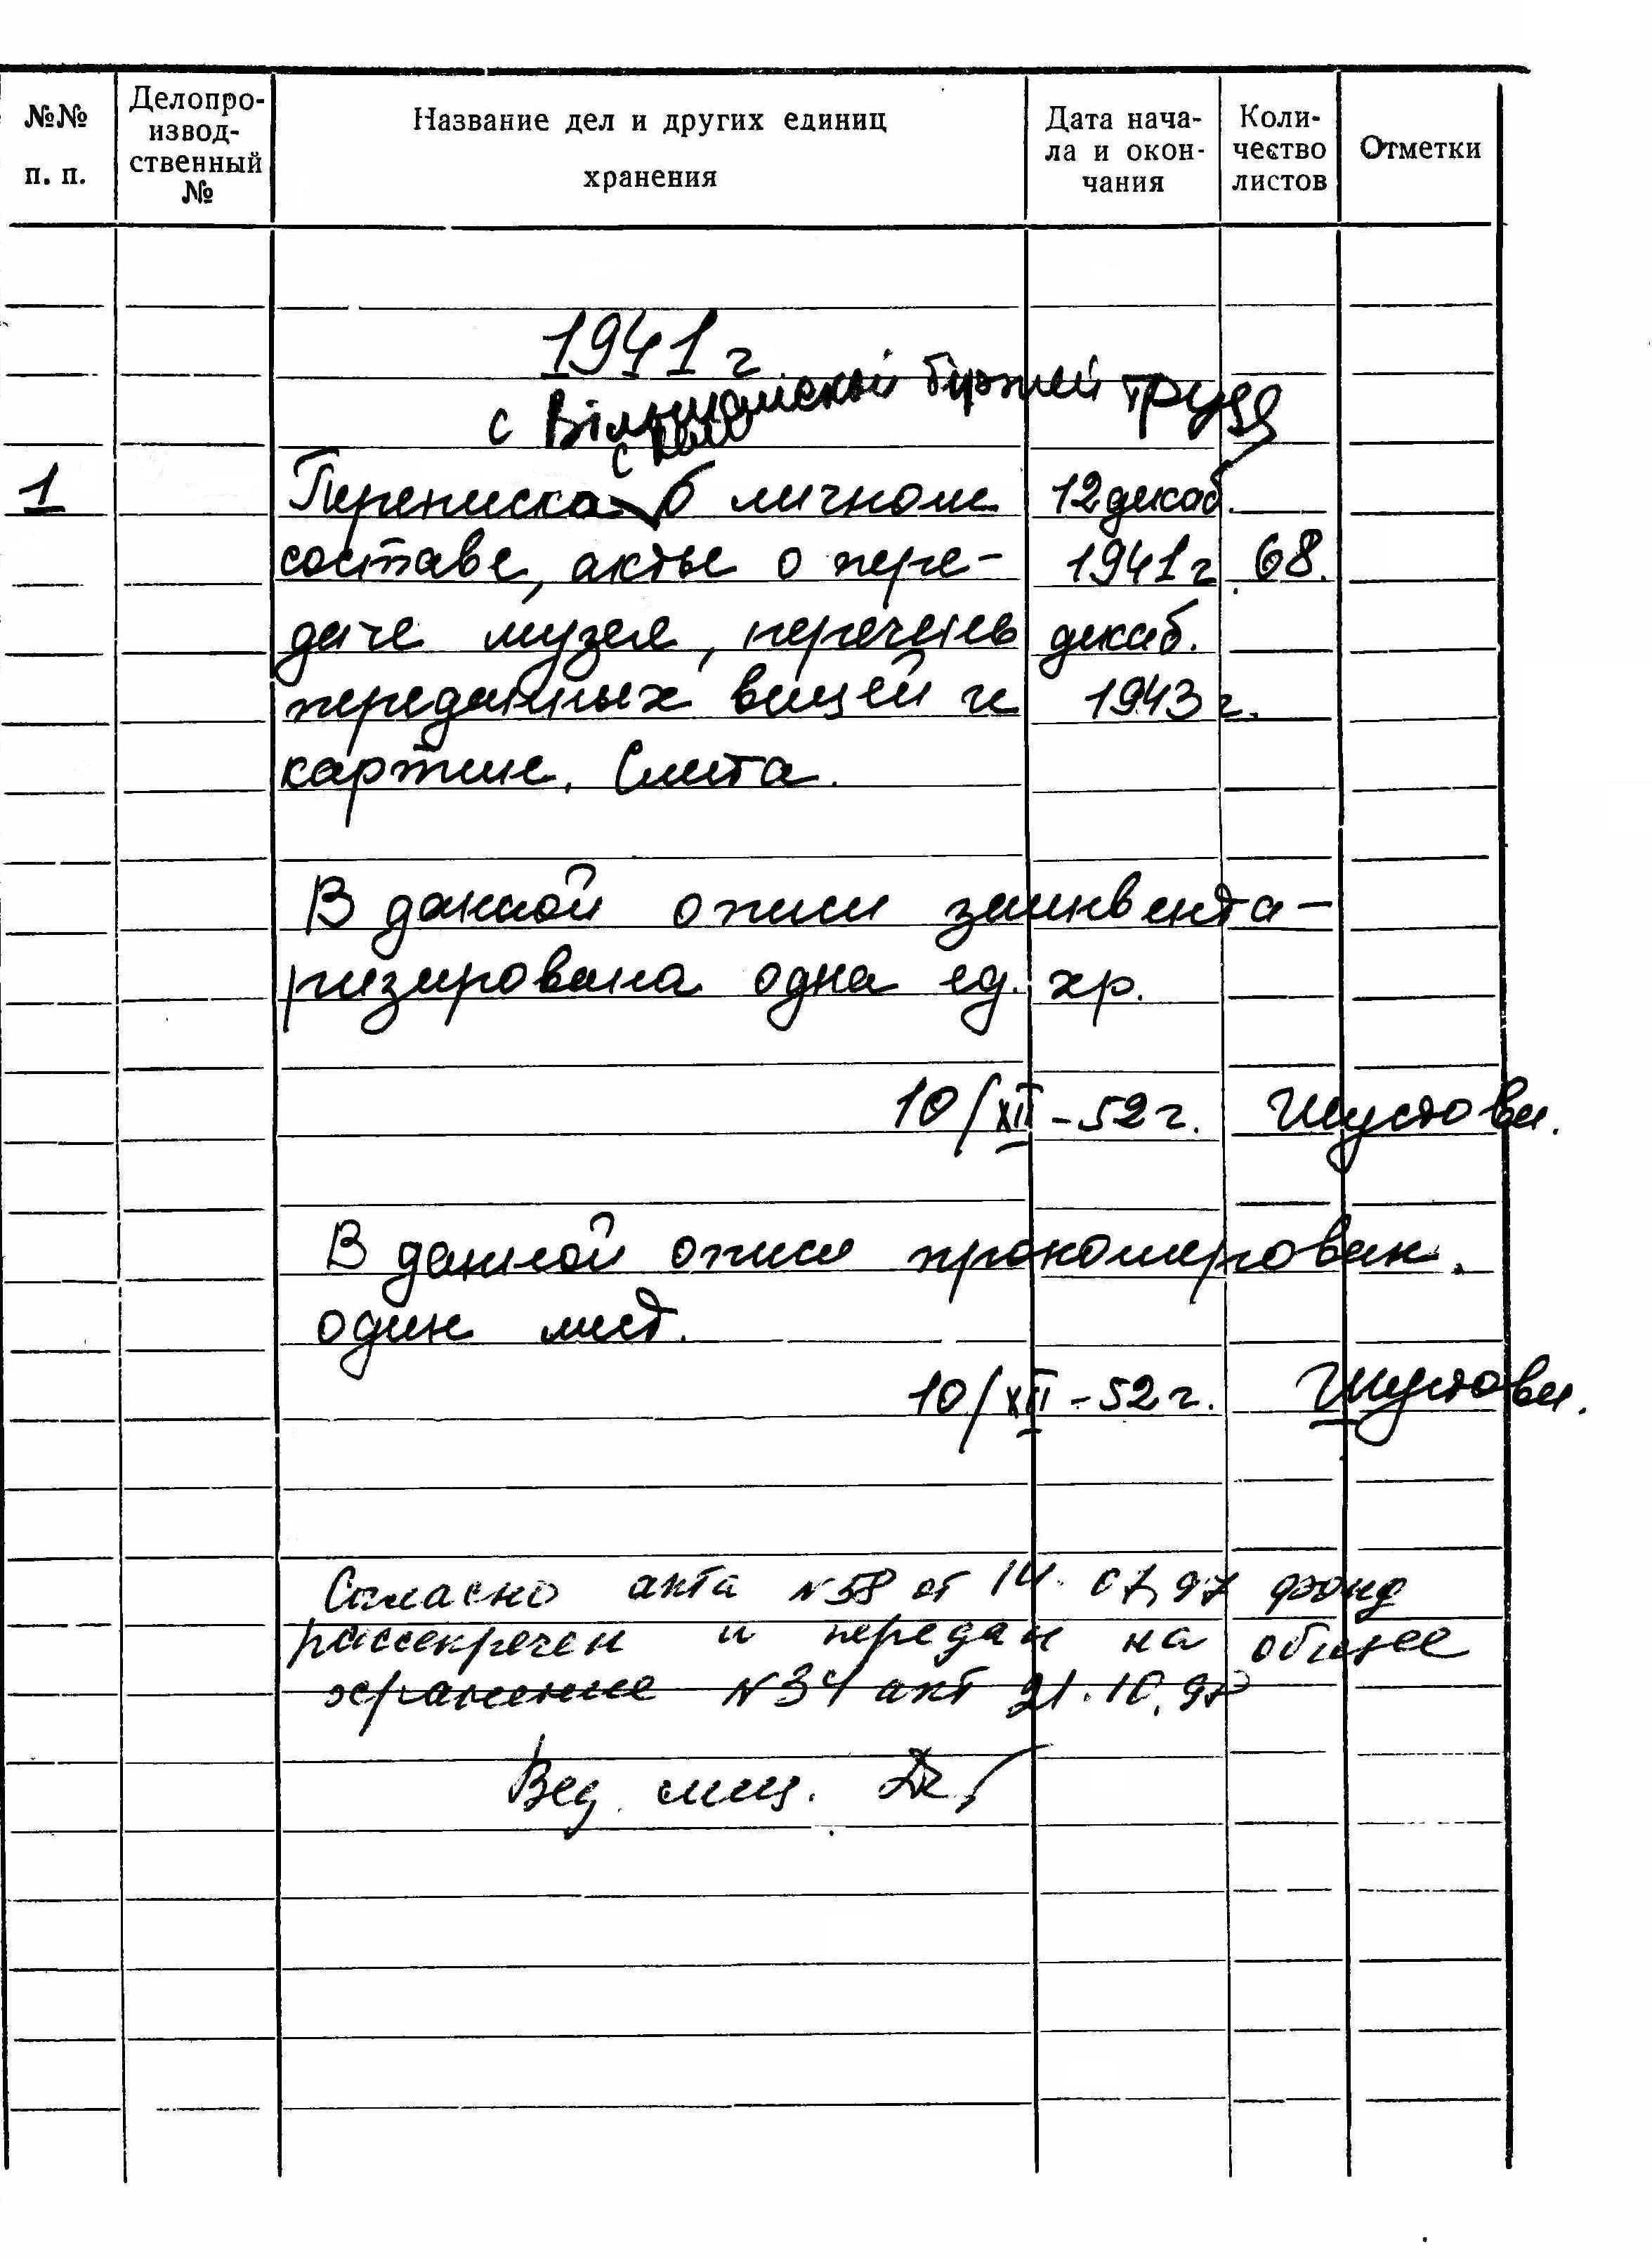 №№
п. п.
Делопро-
извод-
ственный
№
Название дел и других единиц
хранения
Дата нача-
ла и окон-
чания
Коли-
чество
листов
Отметки
1941 г.
с Вільшанской биржей труда
1 Переписка о личном 12 декаб.
составе, акты о пере- 1941 г. 68.
даче музея, перечень декаб.
переданных вещей и 1943 г.
картин. Смета.
В данной описи заинвента-
ризирована одна ед. хр.
10/XII - 52 г. Шустова.
В данной описи
один лист.
10/XII - 52 г. Шустова.
Согласно акта №58 от 14.07.97 фонд
рассекречен и передан на общее
хранение №34 акт 21.10.97
Вед.